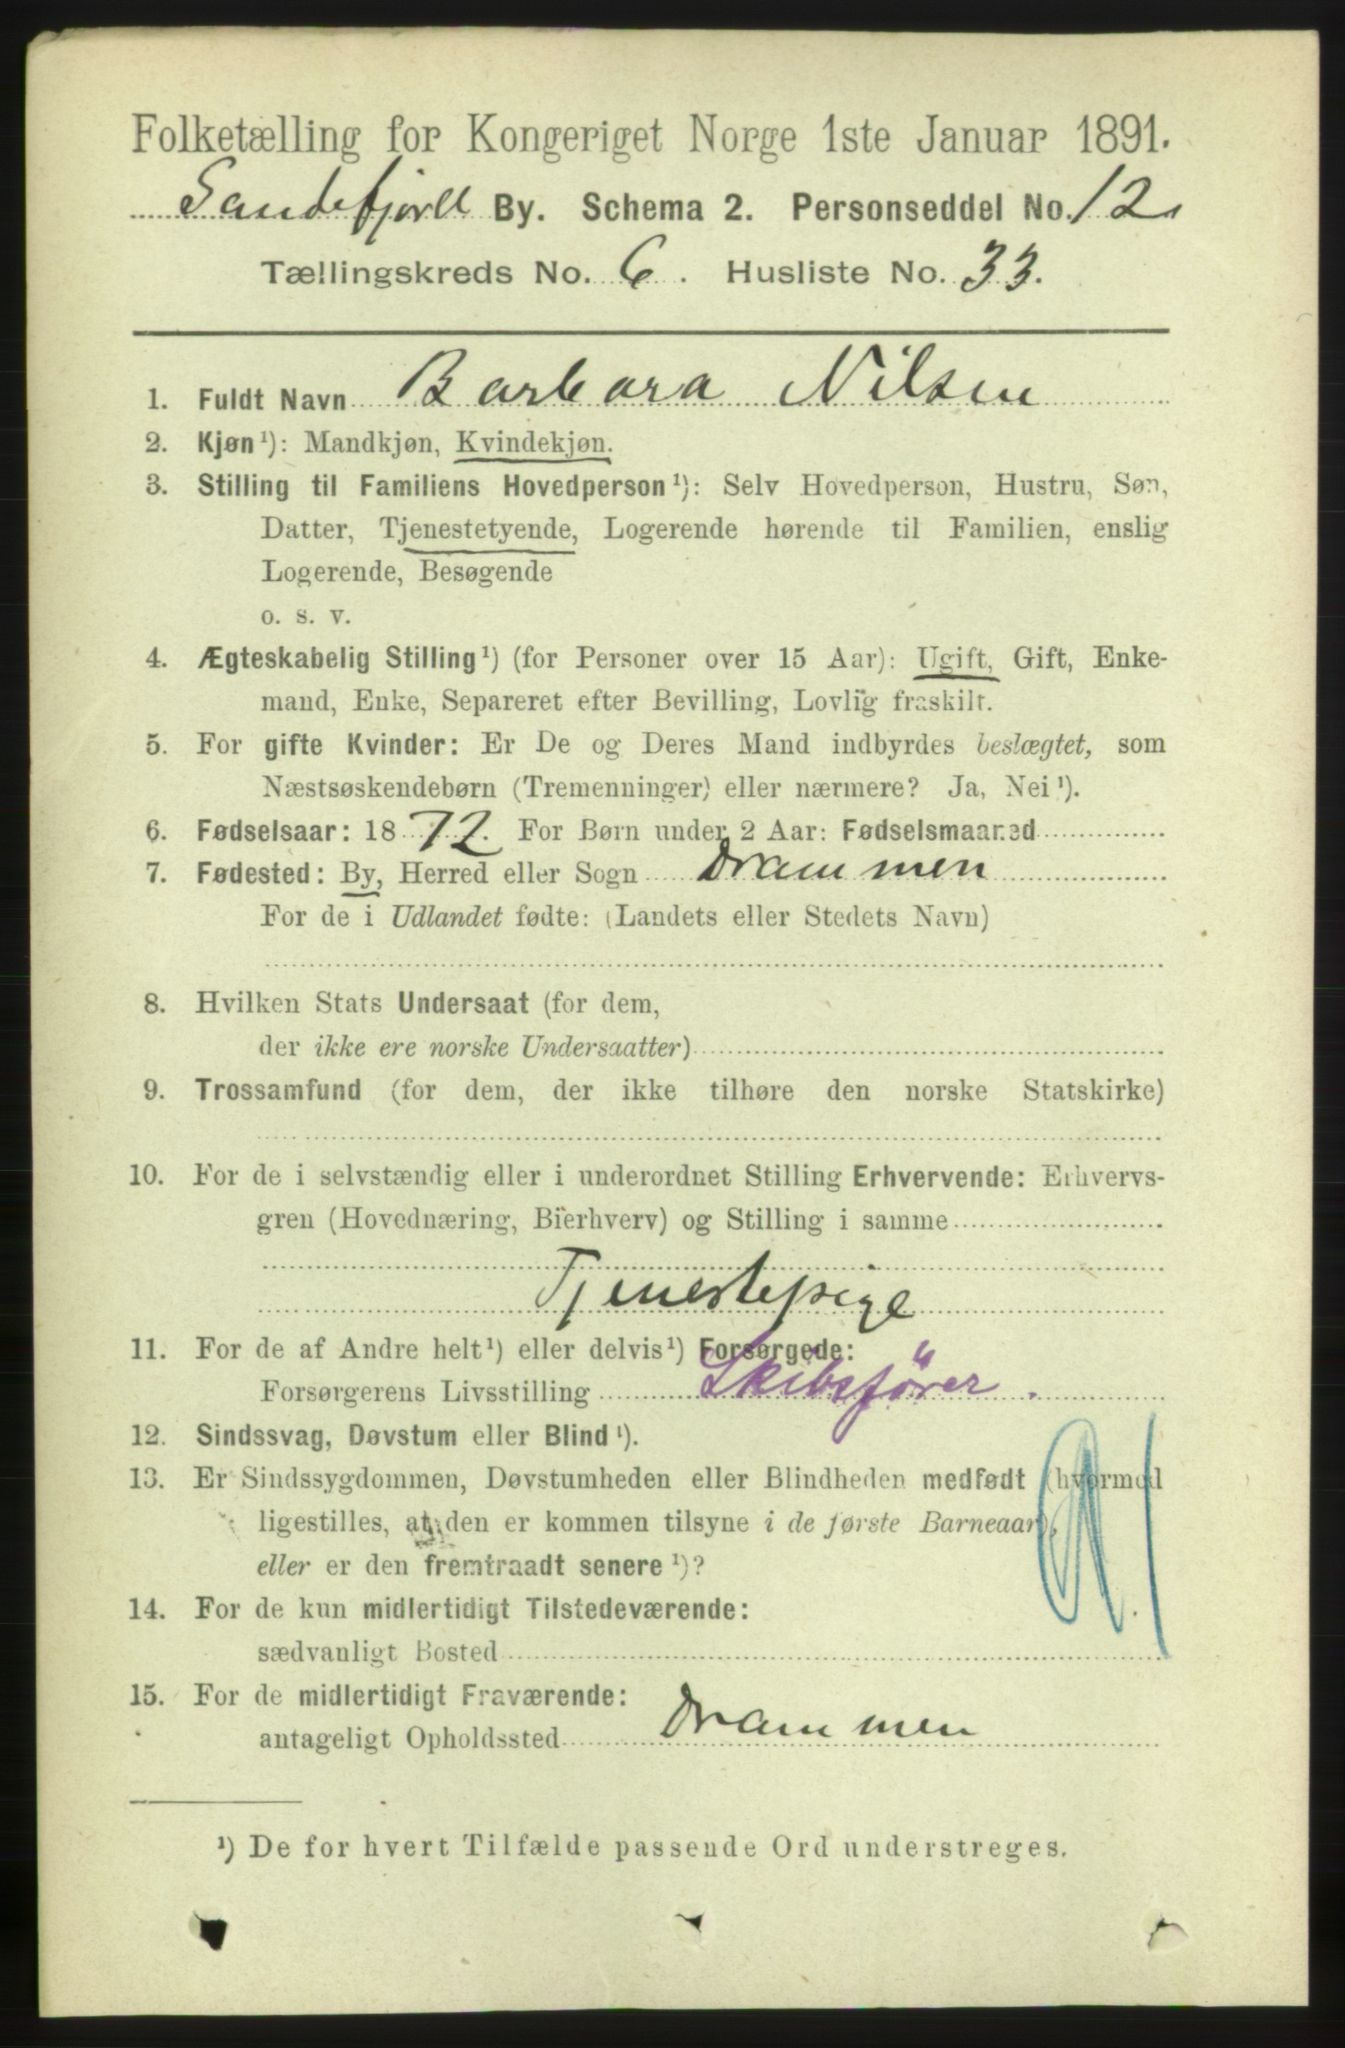 Folketælling for Kongeriget Norge 1ste Januar 1891.
Sandefjord By. Schema 2. Personseddel No. 12.
Tællingskreds No. 6. Husliste No. 33.
1. Fuldt Navn Barbara Nilsen
2. Kjøn¹): Mandkjøn, Kvindekjøn.
3. Stilling til Familiens Hovedperson¹): Selv Hovedperson, Hustru, Søn,
Datter, Tjenestetyende, Logerende hørende til Familien, enslig
Logerende, Besøgende
o. s. v.
4. Ægteskabelig Stilling¹) (for Personer over 15 Aar): Ugift, Gift, Enke-
mand, Enke, Separeret efter Bevilling, Lovlig fraskilt.
5. For gifte Kvinder: Er De og Deres Mand indbyrdes beslægtet, som
Næstsøskendebørn (Tremenninger) eller nærmere? Ja, Nei¹).
6. Fødselsaar: 1872. For Børn under 2 Aar: Fødselsmaaned
7. Fødested: By, Herred eller Sogn Drammen
For de i Udlandet fødte: (Landets eller Stedets Navn)
8. Hvilken Stats Undersaat (for dem,
der ikke ere norske Undersaatter)
9. Trossamfund (for dem, der ikke tilhøre den norske Statskirke)
10. For de i selvstændig eller i underordnet Stilling Erhvervende: Erhvervs-
gren (Hovednæring, Bierhverv) og Stilling i samme
Tjenestepige
11. For de af Andre helt¹) eller delvis¹) Forsørgede:
Forsørgerens Livsstilling Skibsfører.
12. Sindssvag, Døvstum eller Blind¹).
13. Er Sindssygdommen, Døvstumheden eller Blindheden medfødt (hvormed
ligestilles, at den er kommen tilsyne i de første Barneaar),
eller er den fremtraadt senere¹)?
14. For de kun midlertidigt Tilstedeværende:
sædvanligt Bosted
15. For de midlertidigt Fraværende:
antageligt Opholdssted Drammen
¹) De for hvert Tilfælde passende Ord understreges.